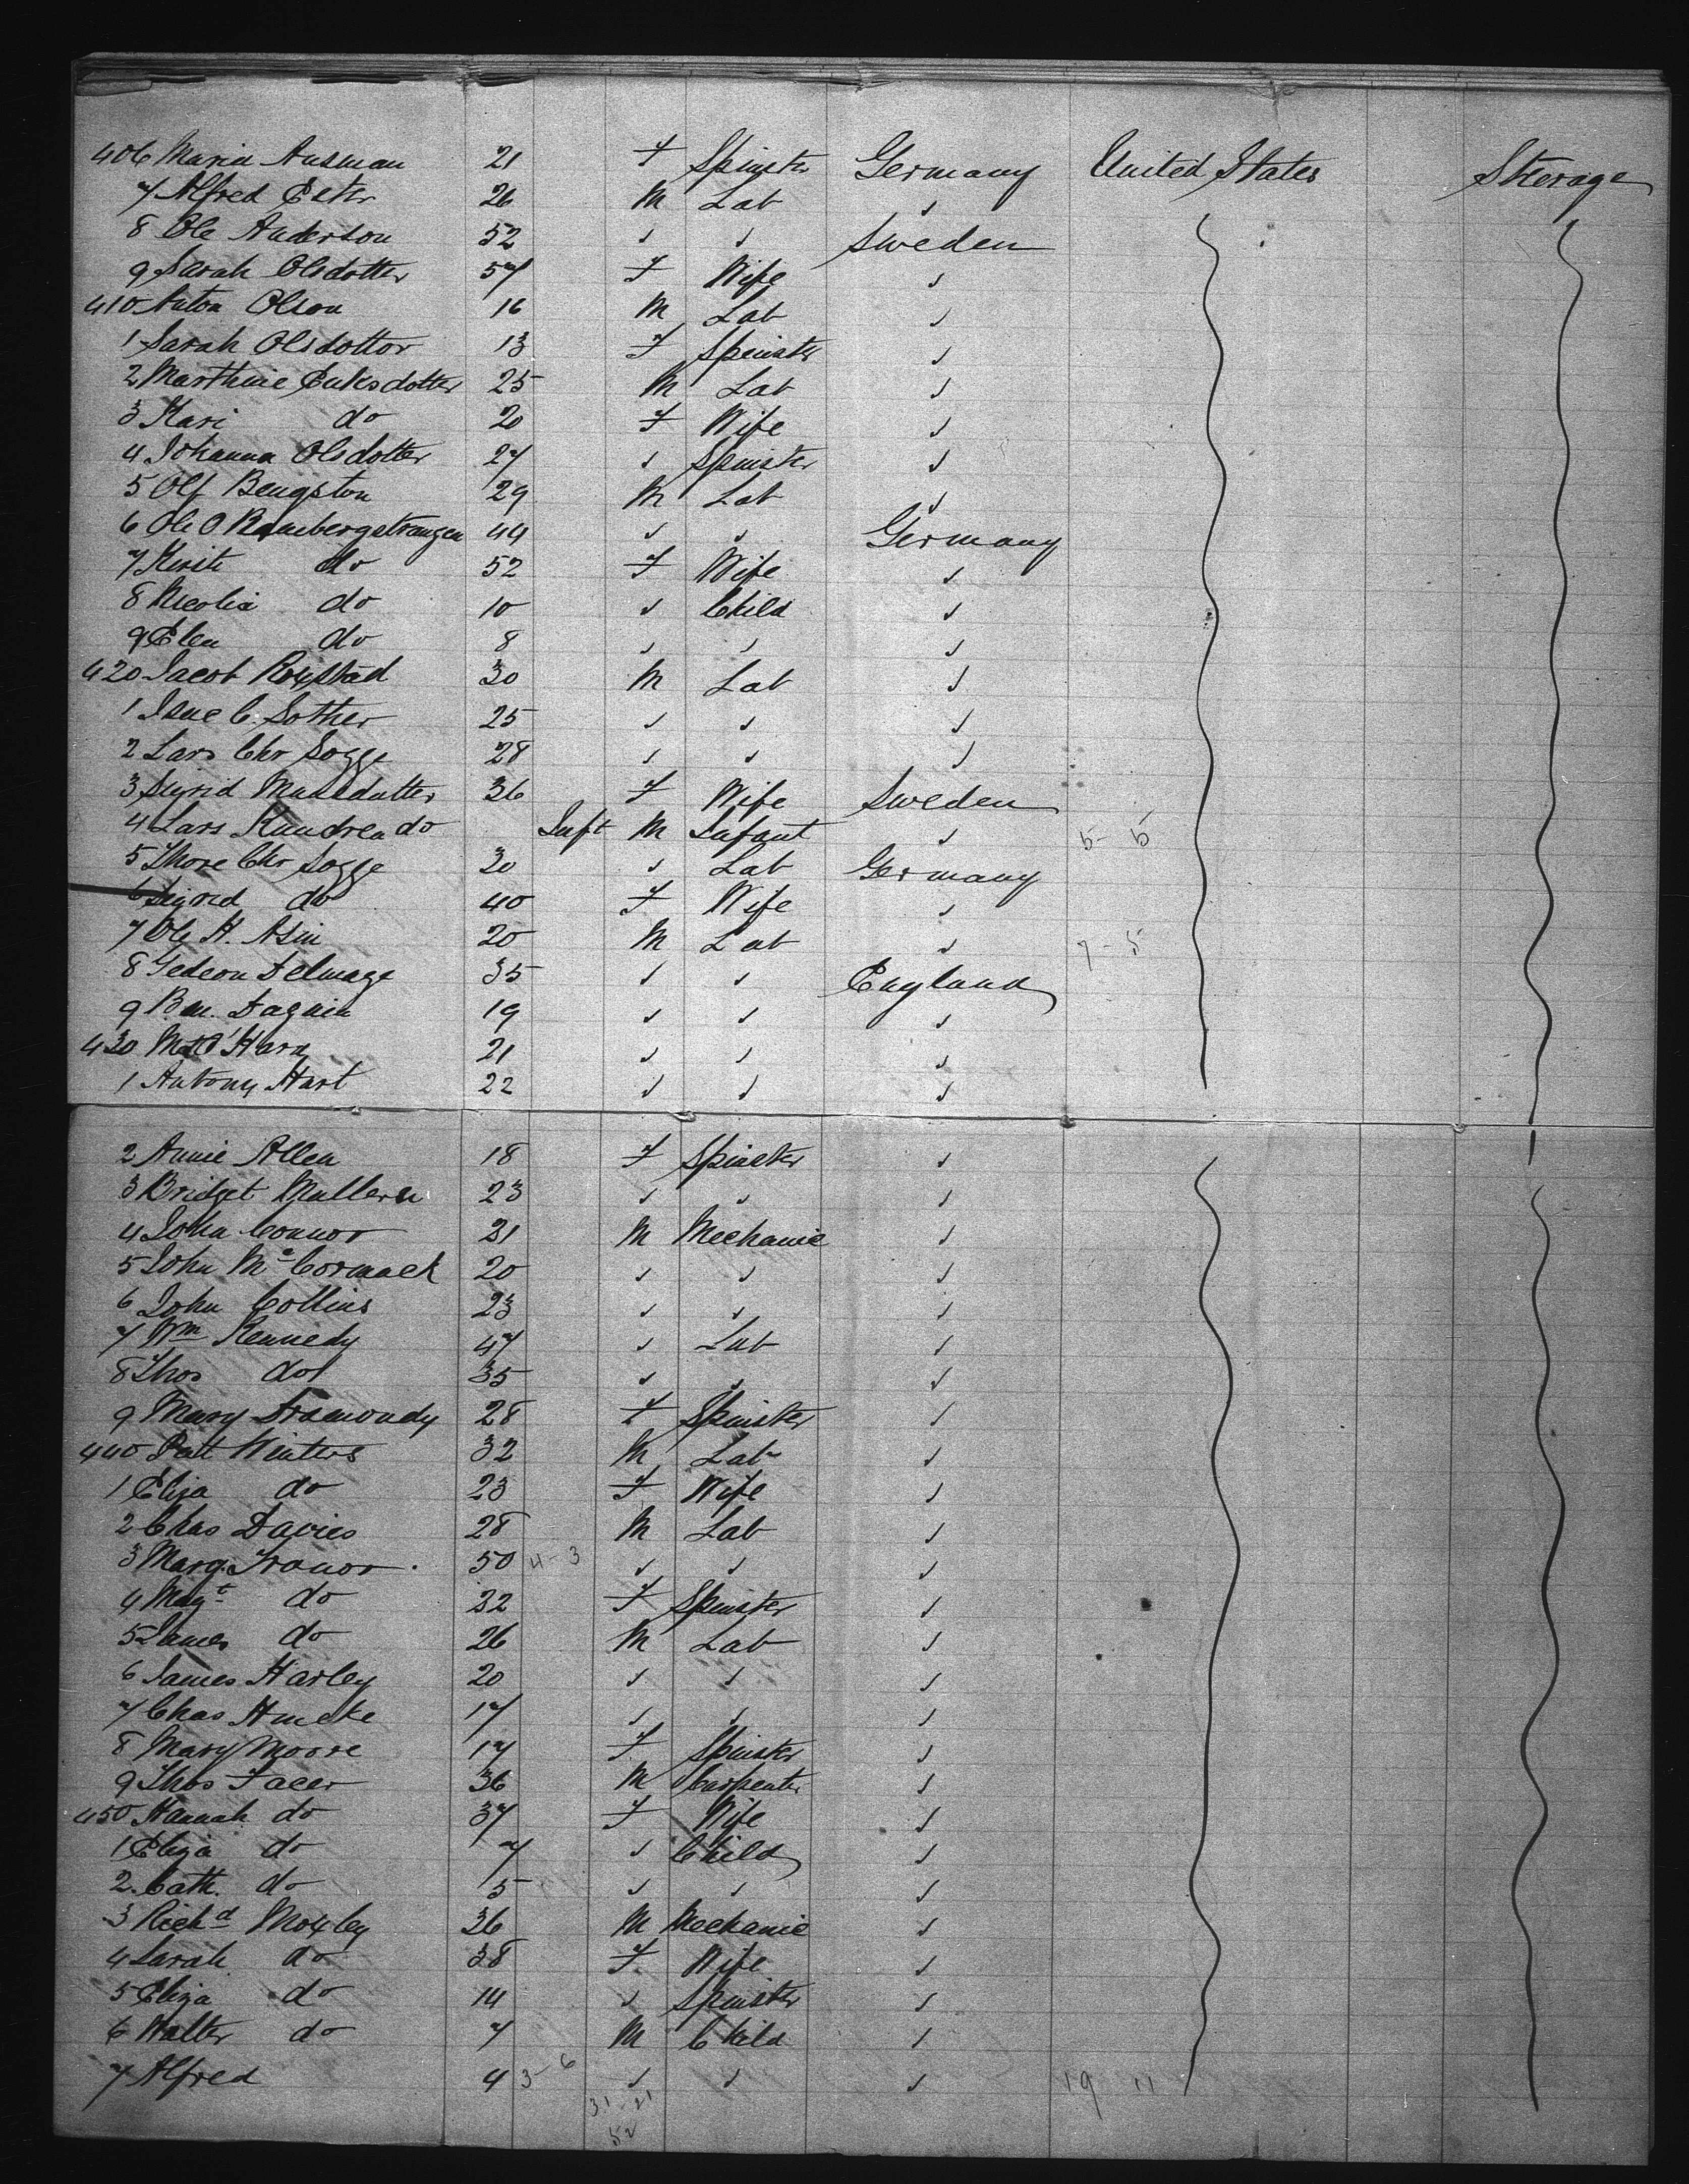 406 Maria Ausman 21 F Spinster Germany United States Steerage
7 Alfred Ester 26 M Lab ✓
8 Ole Anderson 52 ✓ ✓ Sweden
9 Sarah Olsdotter 57 F Wife ✓
410 Anton Olson 16 M Lab ✓
1 Sarah Olsdottor 13 F Spinster ✓
2 Marthine Eriksdotter 25 M Lab ✓
3 Kari do 20 F Wife ✓
4 Johanna Olsdotter 27 ✓ Spinster ✓
5 Olf Bengston 29 M Lab ✓
6 Ole O 44 ✓ ✓ Germany
7 Kirsti do 52 F Wife ✓
8 Nicolia do 10 ✓ Child ✓
9 Elen do 8 ✓ ✓ ✓
420 Jacob Roystad 30 M Lab ✓
1 C. Sother 25 ✓ ✓ ✓
2 Lars Chr Sogge 28 ✓ ✓ ✓
3 Sigrid 36 F Wife Sweden
4 Lars do Inft M Infant ✓ 5 - 5
5 Thore Chr Sogge 30 ✓ Lab Germany
6 Sigrid do 40 F Wife ✓
7 Ole H. 20 M Lab ✓ 7 - 5
8 Gedeon Delmage 35 ✓ ✓ England
9 19 ✓ ✓ ✓
430 O'Hara 21 ✓ ✓ ✓
1 Antony Hart 22 ✓ ✓ ✓
2 Annie Allen 18 F Spinster ✓
3 Bridget Mullern 23 ✓ ✓ ✓
4 John Connor 21 M Mechanic ✓
5 John McCormack 20 ✓ ✓ ✓
6 John Collins 23 ✓ ✓ ✓
7 Wm Kennedy 47 ✓ Lab ✓
8 Thos do 35 ✓ ✓ ✓
9 Mary 28 F Spinster ✓
440 Patt Winters 32 M Lab ✓
1 Eliza do 23 F Wife ✓
2 Chas Davies 28 M Lab ✓
3 Marg. 50 4 - 3 ✓ ✓ ✓
4 Magt do 22 F Spinster ✓
5 James do 26 M Lab ✓
6 James Harley 20 ✓ ✓ ✓
7 Chas 17 ✓ ✓ ✓
8 Mary Moore 17 F Spinster ✓
9 Thos Facer 36 M Carpenter ✓
450 Hannah do 37 F Wife ✓
1 Eliza do 7 ✓ Child ✓
2 Cath. do 5 ✓ ✓ ✓
3 Richd Moxley 36 M Mechanic ✓
4 Sarah do 38 F Wife ✓
5 Eliza do 14 ✓ Spinster ✓
6 Walter do 7 M Child ✓
7 Alfred 4 3 - 6 ✓ ✓ ✓ 19 11
31 - 21
52